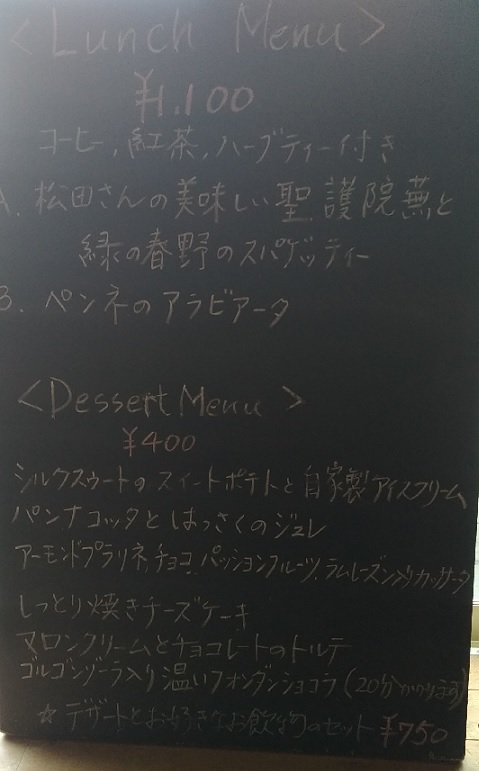 <Lunch Menu>
¥1.100
コーヒー, 紅茶, ハーブティー付き
A. 松田さんの美味しい聖護院蕪と
緑の春野のスパゲッティー
B. ペンネのアラビアータ
<Dessert Menu>
¥400
シルクスゥートのスイートポテトと自家製アイスクリーム
パンナコッタとはっさくのジュレ
アーモンドプラリネ, チョコ, パッションフルーツ, ラムレーズン入りカッサータ
しっとり焼きチーズケーキ
マロンクリームとチョコレートのトルテ
ゴルゴンゾーラ入り温いフォンダンショコラ (20分かかります)
☆ デザートとお好きなお飲物のセット ¥750